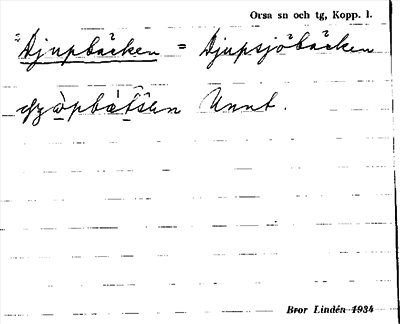 Orsa sn och tg, Kopp. l.
"Djupbäcken = Djupsjöbäcken
Unnt.
Bror Lindén 1934